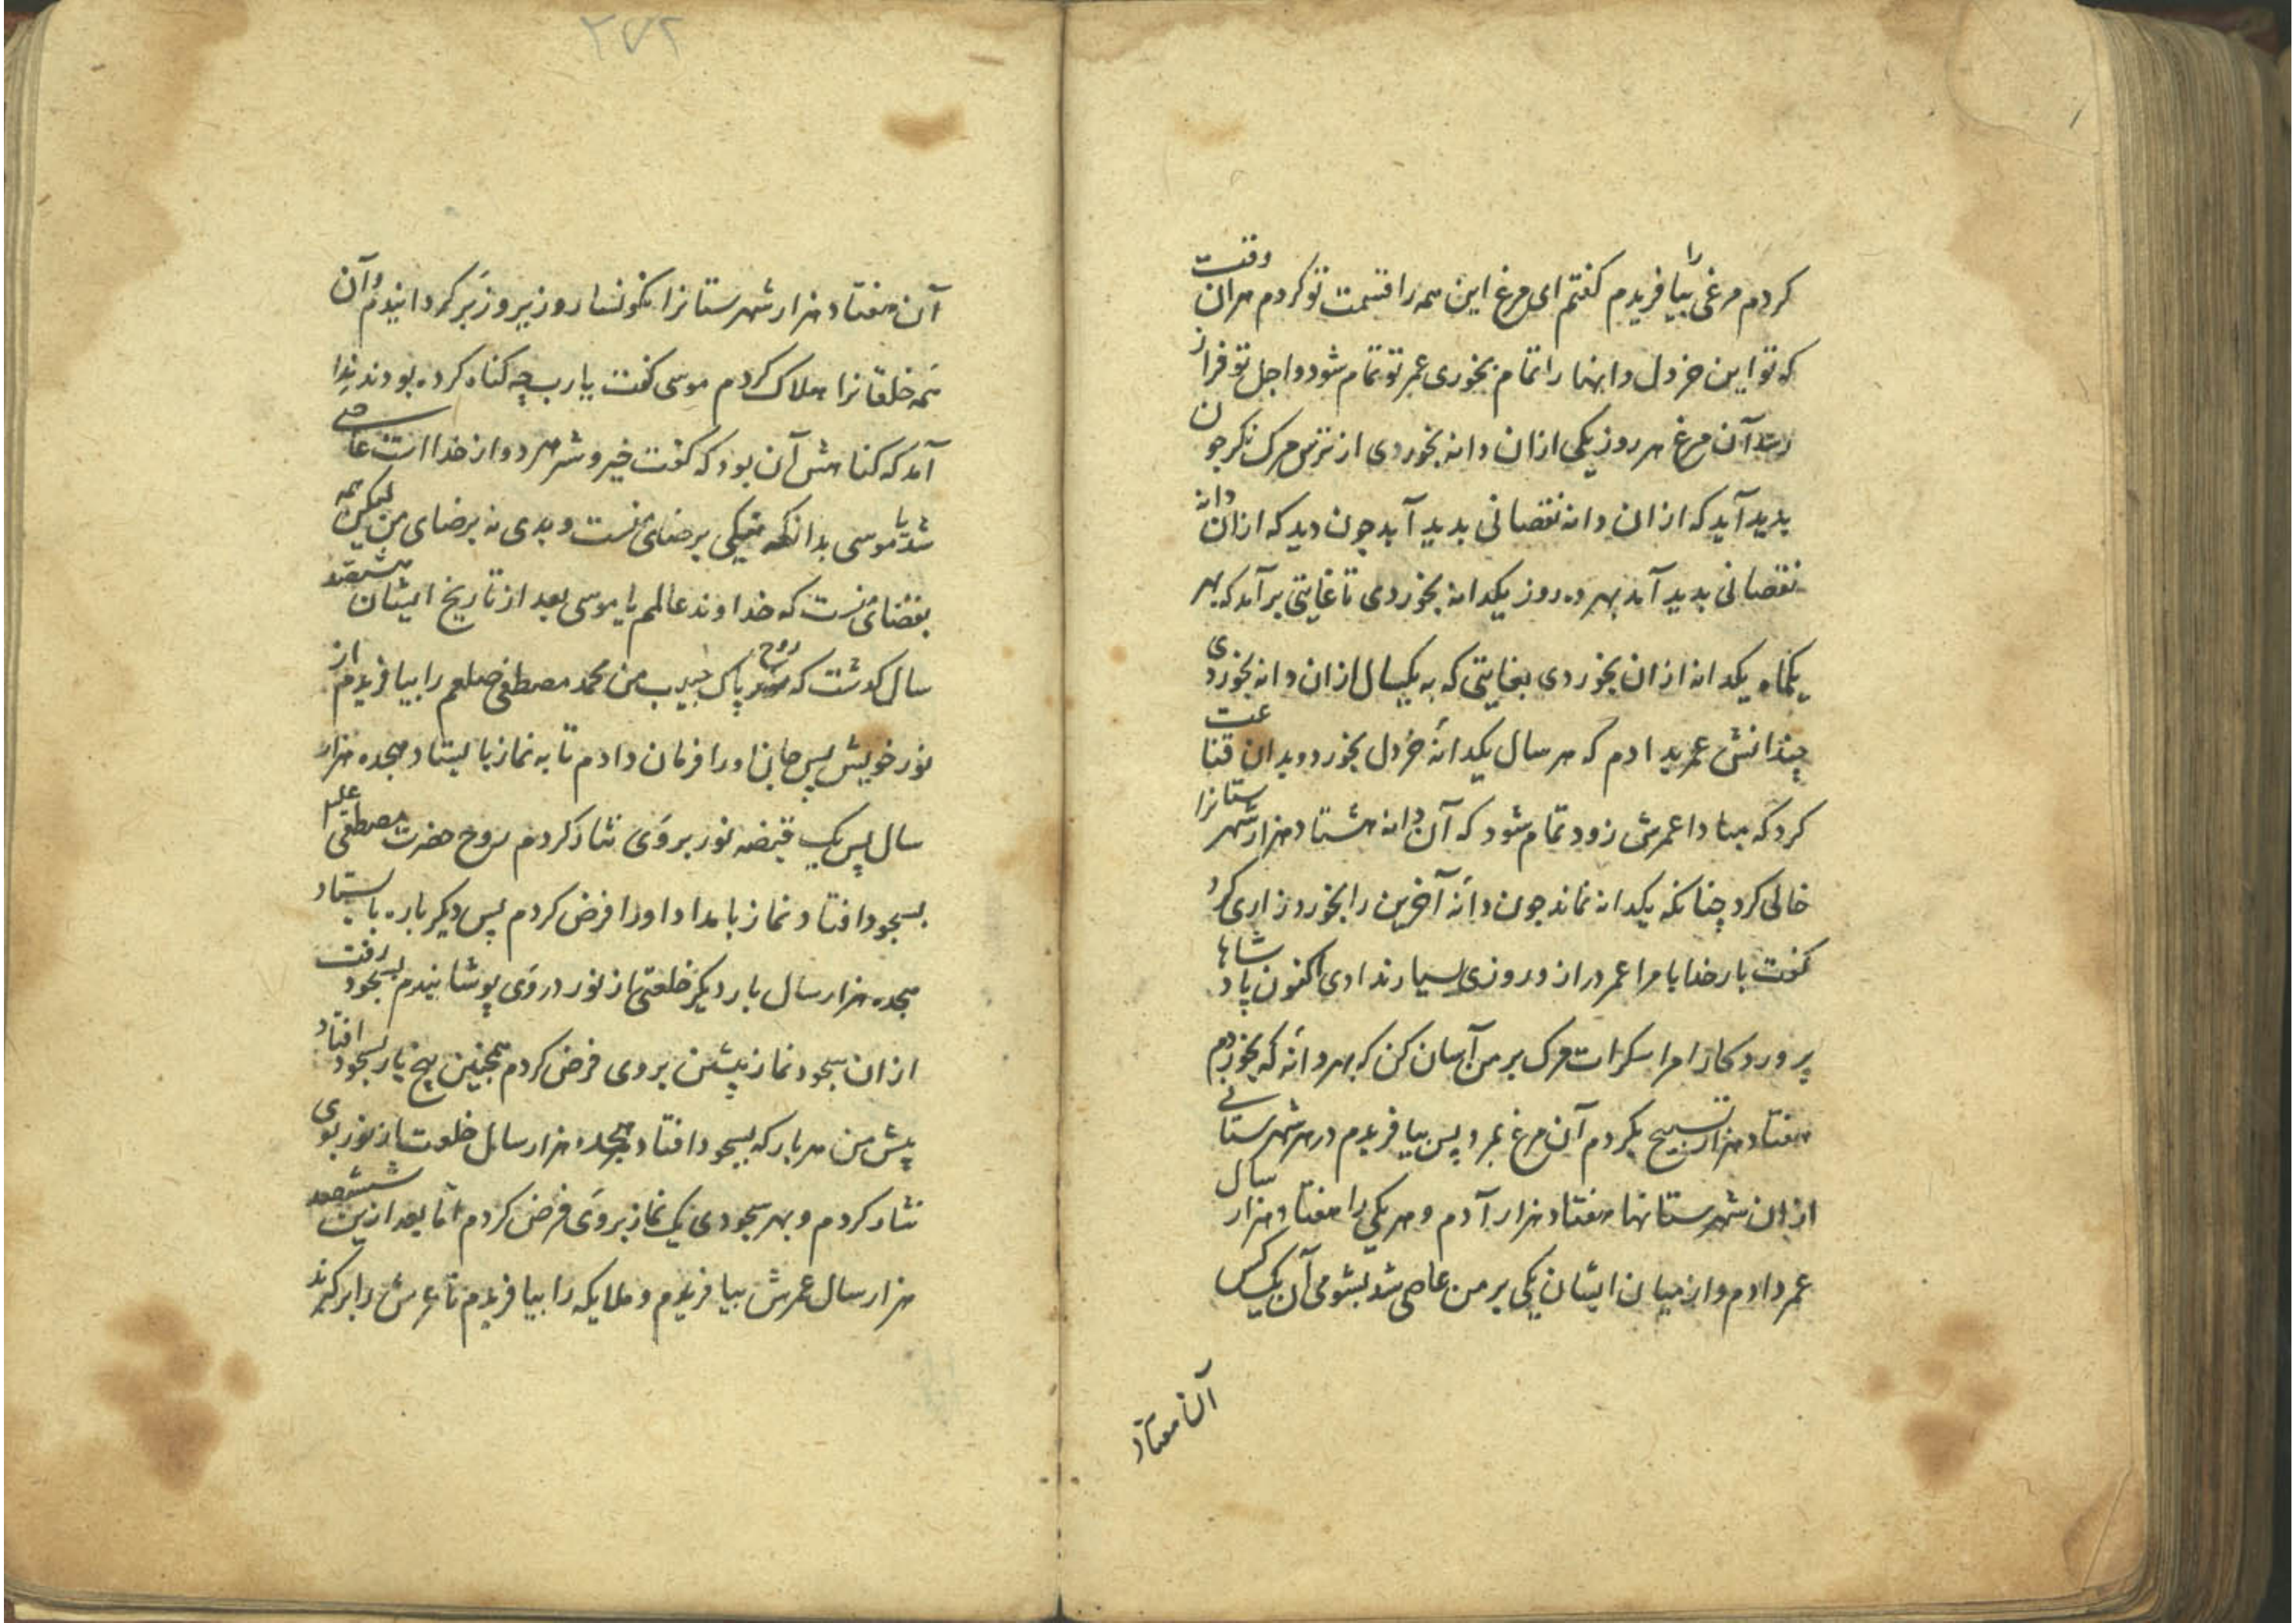 کردم مرغی را بیافریدم کفتم ای مرغ این همه را قسمت تو کردم هران وقت
که تو این خردل دانها را تمام بخوری عمر تو تمام شود و اجل تو فراز
رسد آن مرغ هر روز یکی ازان دانه بخوردی از ترس مرک نکر چون
پدید آید که ازان دانه نقصانی پدید آید چون دید که ازان دانه
نقصانی پدید آمد بهر ده روز یکدانه بخوردی تا غایتی برآمد که بهر
یکماه یکدانه ازان بخوردی بغایتی که به یکسال ازان دانه بخوردی
چندانش عمر بدادم که هر سال یکدانهٔ خردل بخورد و بدان قناعت
کرد که مبادا عمرش زود تمام شود که آن دانه هشتاد هزار شهرستانرا
خالی کرد چنانکه یکدانه نماند چون دانهٔ آخرین را بخورد زاری کرد
کفت بار خدایا مرا عمر دراز و روزی بسیار ندادی اکنون پادشاها
پروردکارا مرا سکرات مرک بر من آسان کن که بهر دانهٔ که بخوردم
هفتاد هزار تسبیح بکردم آن مرغ بمرد پس بیافریدم در هر شهرستانی
ازان شهرستانها هفتاد هزار آدم و هر یکی را هفتاد هزار سال
عمر دادم و از میان ایشان یکی بر من عاصی شد بشومی آن یک کس
آن هفتاد
۲۷۲
آن هفتاد هزار شهرستانرا نکونسار و زیر و زبر کردانیدم و آن
همه خلقانرا هلاک کردم موسی کفت یا رب چه کناه کرده بودند ندا
آمد که کناهش آن بود که کفت خیر و شر هر دو از خدا است عاصی
شد یا موسی بدانکه نیکی برضای منست و بدی نه برضای من لیکن همه
بقضای منست که خداوند عالمم یا موسی بعد از تاریخ ایشان ششصد
سال کذشت که روح پاک حبیب من محمد مصطفی صلعم را بیافریدم از
نور خویش پس جان او را فرمان دادم تا به نماز بایستاد هجده هزار
سال پس یک قبضه نور بر وی نثار کردم روح حضرت مصطفی علیه
بسجود افتاد نماز بامداد او را فرض کردم پس دیکر باره بایستاد
هجده هزار سال بار دیکر خلعتی از نور در وی پوشانیدم بسجود رفت
ازان سجود نماز پیشین بر وی فرض کردم همچنین پنج بار بسجود افتاد
پیش من هر بار که بسجود افتاد هجده هزار سال خلعت از نور بوی
نثار کردم و بهر سجودی یک نماز بر وی فرض کردم اما بعد ازین ششصد
هزار سال عرش بیافریدم و ملایکه را بیافریدم تا عرش را برکیرند